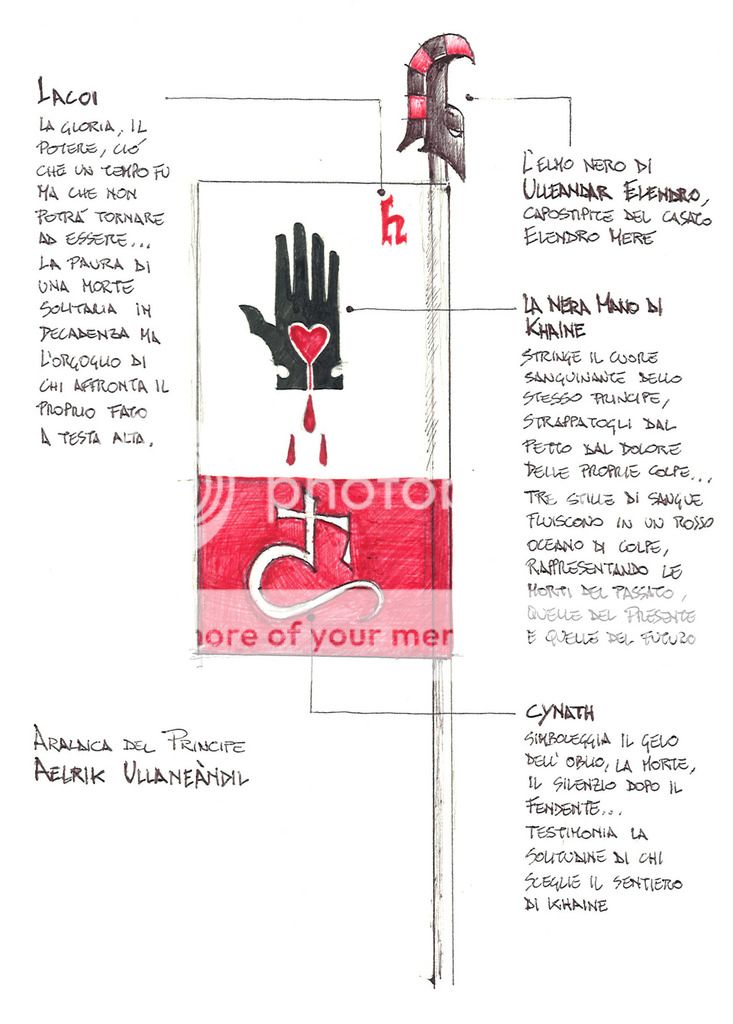 Lacoi
La gloria, il
potere, ciò
che un tempo fu
ma che non
potrà tornare
ad essere...
La paura di
una morte
solitaria in
decadenza ma
l'orgoglio di
chi affronta il
proprio fato
a testa alta.
L'elmo nero di
Ulleandar Elendro,
capostipite del casato
Elendro Mere
La nera mano di
Khaine
Stringe il cuore
sanguinante dello
stesso principe,
strappatogli dal
petto dal dolore
delle proprie colpe...
Tre stille di sangue
fluiscono in un rosso
oceano di colpe,
rappresentando le
morti del passato,
quelle del presente
e quelle del futuro
photob
more of your mem
Cynath
Simboleggia il gelo
dell'oblio, la morte,
il silenzio dopo il
fendente...
Testimonia la
solitudine di chi
sceglie il sentiero
di Khaine
Araldica del Principe
Aelrik Ullaneàndil